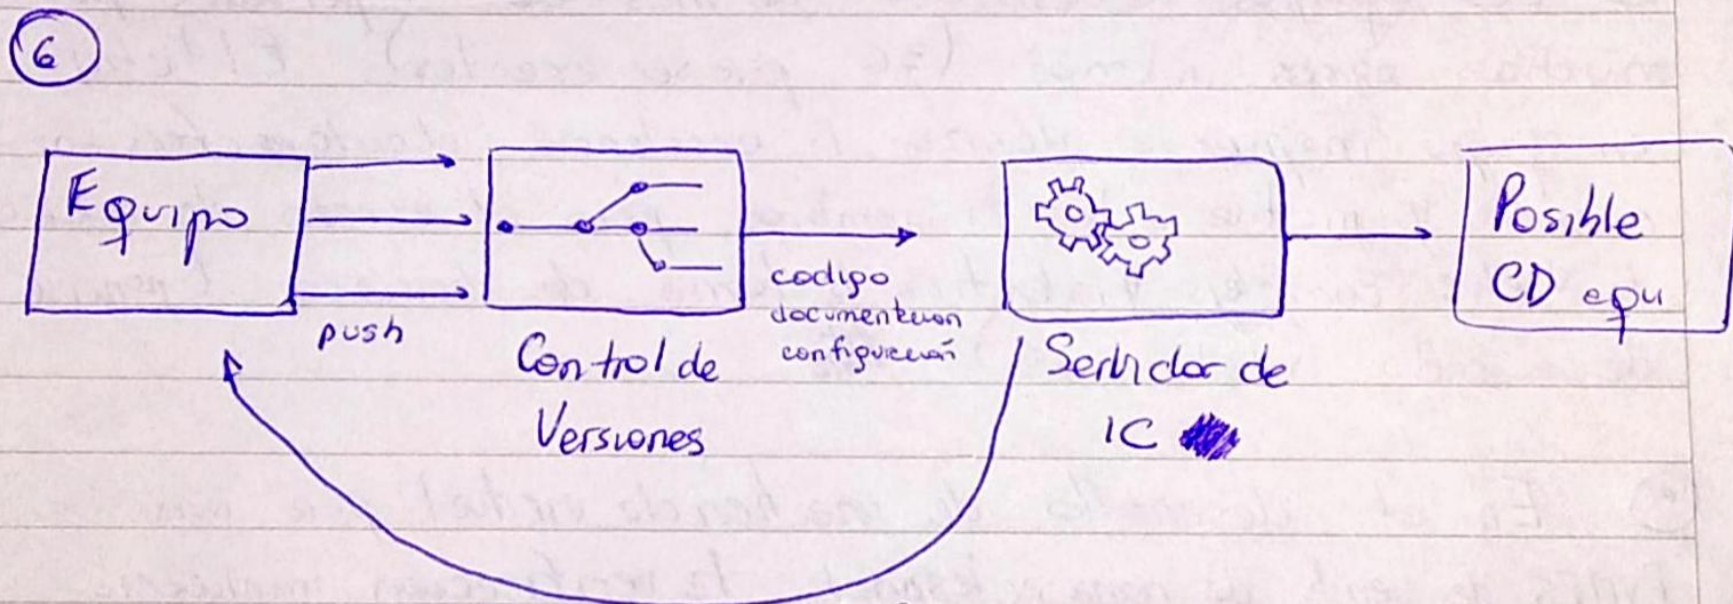 6
Equipo
push
Control de
Versiones
codigo
documentación
configuración
Servidor de
IC
Posible
CD aquí